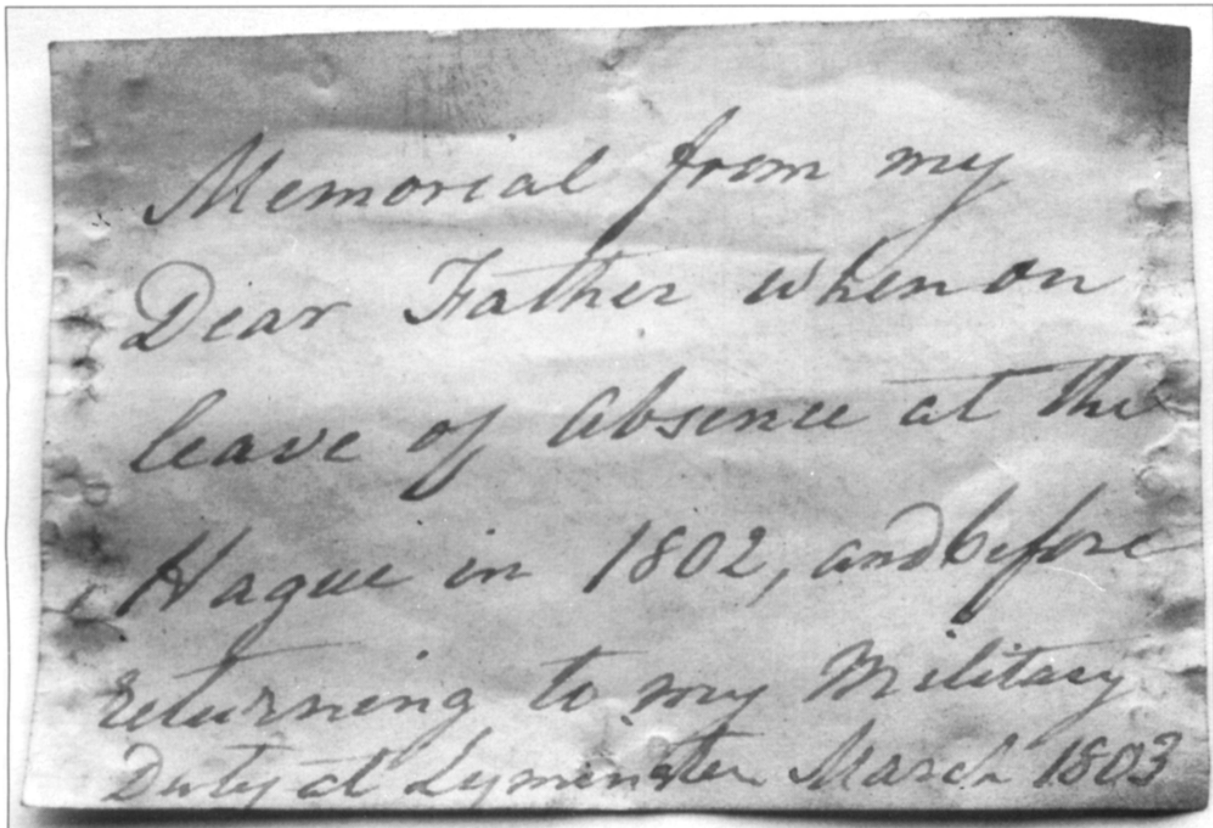 Memorial from my
Dear Father when on
leave of Absence at the
Hague in 1802, and before
returning to my Military
Duty at Lyminster March 1803